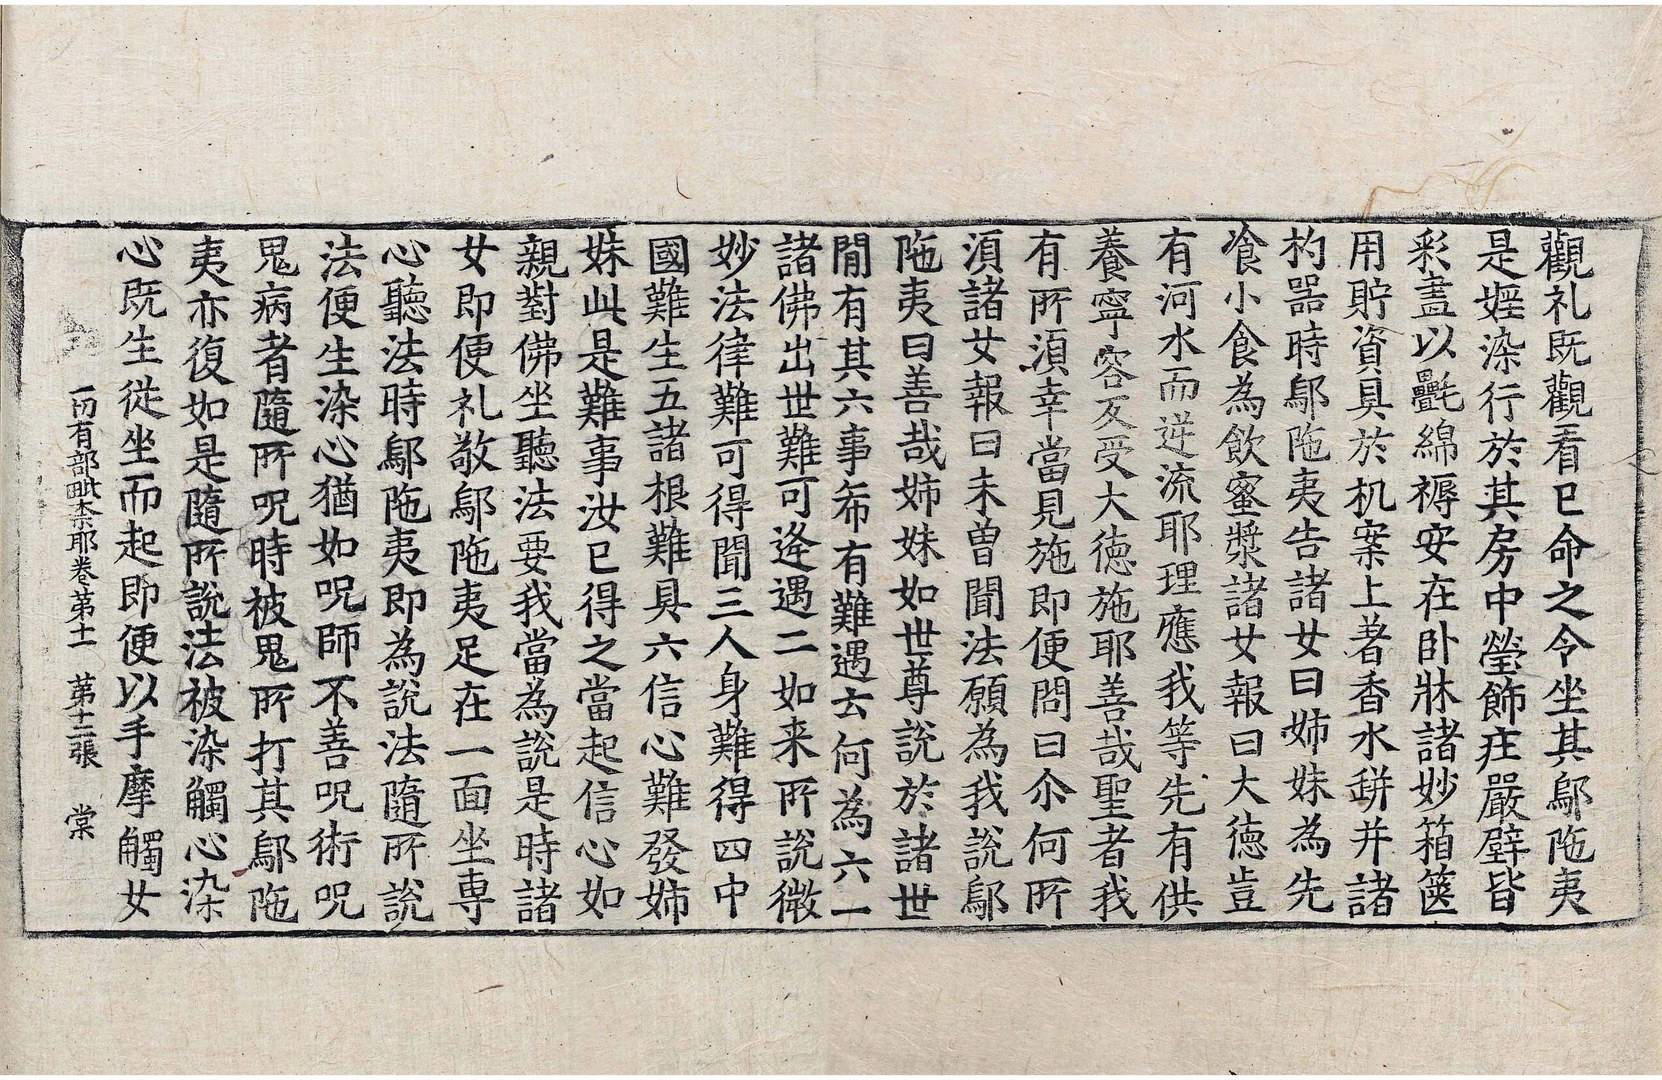 觀礼既觀看已命之令坐其鄔陁夷
是婬染行於其房中瑩飾庄嚴壁皆
彩畫以㲲綿褥安在卧牀諸妙箱篋
用貯資具於机案上著香水缾并諸
杓器時鄔陁夷告諸女曰姉妹為先
飡小食為飲蜜漿諸女報曰大德豈
有河水而逆流耶理應我等先有供
養寧容反受大德施耶善哉聖者我
有所湏幸當見施即便問曰尒何所
湏諸女報曰未曾聞法願為我說鄔
陁夷曰善哉姉妹如世尊說於諸世
間有其六事希有難遇云何為六一
諸佛出世難可逢遇二如来所說微
妙法律難可得聞三人身難得四中
國難生五諸根難具六信心難發姉
妹此是難事汝已得之當起信心如
親對佛坐聽法要我當為說是時諸
女即便礼敬鄔陁夷足在一面坐專
心聽法時鄔陁夷即為說法隨所說
法便生染心猶如呪師不善呪術呪
鬼病者隨所呪時被鬼所打其鄔陁
夷亦復如是隨所說法被染觸心染
心既生從坐而起即便以手摩觸女
一切有部毗柰耶卷苐十一　苐十二張　棠